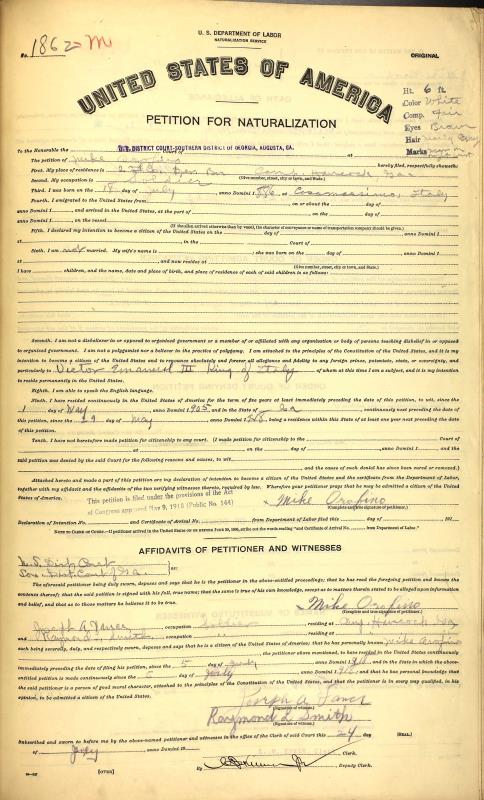 U. S. DEPARTMENT OF LABOR
NATURALIZATION SERVICE
No. 1862 M
ORIGINAL
UNITED STATES OF AMERICA
PETITION FOR NATURALIZATION
Ht. 6 ft
Color White
Comp. Fair
Eyes Brown
Hair
Marks
To the Honorable the U.S. DISTRICT COURT-SOUTHERN DISTRICT OF GEORGIA, AUGUSTA, GA.
Court of at
The petition of Mike Orofino hereby filed, respectfully showeth:
First. My place of residence is Camp Hancock, Ga
(Give number, street, city or town, and State.)
Second. My occupation is Soldier
Third. I was born on the 18 day of July anno Domini 1886 at Italy
Fourth. I emigrated to the United States from on or about the day of
anno Domini 1 and arrived in the United States, at the port of on the day of
anno Domini 1 on the vessel
(If the alien arrived otherwise than by vessel, the character of conveyance or name of transportation company should be given.)
Fifth. I declared my intention to become a citizen of the United States on the day of anno Domini 1
at in the Court of
Sixth. I am not married. My wife's name is she was born on the day of anno Domini 1
at and now resides at
(Give number, street, city or town, and State.)
I have children, and the name, date and place of birth, and place of residence of each of said children is as follows:
Seventh. I am not a disbeliever in or opposed to organized government or a member of or affiliated with any organization or body of persons teaching disbelief in or opposed
to organized government. I am not a polygamist nor a believer in the practice of polygamy. I am attached to the principles of the Constitution of the United States, and it is my
intention to become a citizen of the United States and to renounce absolutely and forever all allegiance and fidelity to any foreign prince, potentate, state, or sovereignty, and
particularly to Victor Emanuel III King of Italy of whom at this time I am a subject, and it is my intention
to reside permanently in the United States.
Eighth. I am able to speak the English language.
Ninth. I have resided continuously in the United States of America for the term of five years at least immediately preceding the date of this petition, to wit, since the
1 day of May anno Domini 1905, and in the State of Ga continuously next preceding the date
of this petition, since the 29 day of May anno Domini 1918, being a residence within this State of at least one year next preceding the date
of this petition.
Tenth. I have not heretofore made petition for citizenship to any court. (I made petition for citizenship to the Court of
at on the day of anno Domini 1 and the
said petition was denied by the said Court for the following reasons and causes, to wit,
and the cause of such denial has since been cured or removed.)
Attached hereto and made a part of this petition are my declaration of intention to become a citizen of the United States and the certificate from the Department of Labor,
together with my affidavit and the affidavits of the two verifying witnesses thereto, required by law. Wherefore your petitioner prays that he may be admitted a citizen of the
United States of America.
This petition is filed under the provisions of the Act
of Congress approved May 9, 1918 (Public No. 144)
Mike Orofino
(Complete and true signature of petitioner.)
Declaration of Intention No. and Certificate of Arrival No. from Department of Labor filed this day of 191
NOTE TO CLERK OF COURT.—If petitioner arrived in the United States ON OR BEFORE JUNE 29, 1906, strike out the words reading "and Certificate of Arrival No. from Department of Labor."
AFFIDAVITS OF PETITIONER AND WITNESSES
U.S. Dist Court
ss:
The aforesaid petitioner being duly sworn, deposes and says that he is the petitioner in the above-entitled proceedings; that he has read the foregoing petition and knows the
contents thereof; that the said petition is signed with his full, true name; that the same is true of his own knowledge, except as to matters therein stated to be alleged upon information
and belief, and that as to those matters he believes it to be true.
Mike Orofino
(Complete and true signature of petitioner.)
Joseph A. occupation Soldier residing at Camp Hancock, Ga
Raymond L. Smith occupation " residing at
each being severally, duly, and respectively sworn, deposes and says that he is a citizen of the United States of America; that he has personally known Mike Orofino
the petitioner above mentioned, to have resided in the United States continuously
immediately preceding the date of filing his petition, since the 5 day of July anno Domini 1918 and in the State in which the above-
entitled petition is made continuously since the 5 day of July anno Domini 1918 and that he has personal knowledge that
the said petitioner is a person of good moral character, attached to the principles of the Constitution of the United States, and that the petitioner is in every way qualified, in his
opinion, to be admitted a citizen of the United States.
Joseph A.
(Signature of witness.)
Raymond L Smith
(Signature of witness.)
Subscribed and sworn to before me by the above-named petitioner and witnesses in the office of the Clerk of said Court this 24 day
[SEAL.]
of July anno Domini 19
Clerk.
By Deputy Clerk.
[OVER]